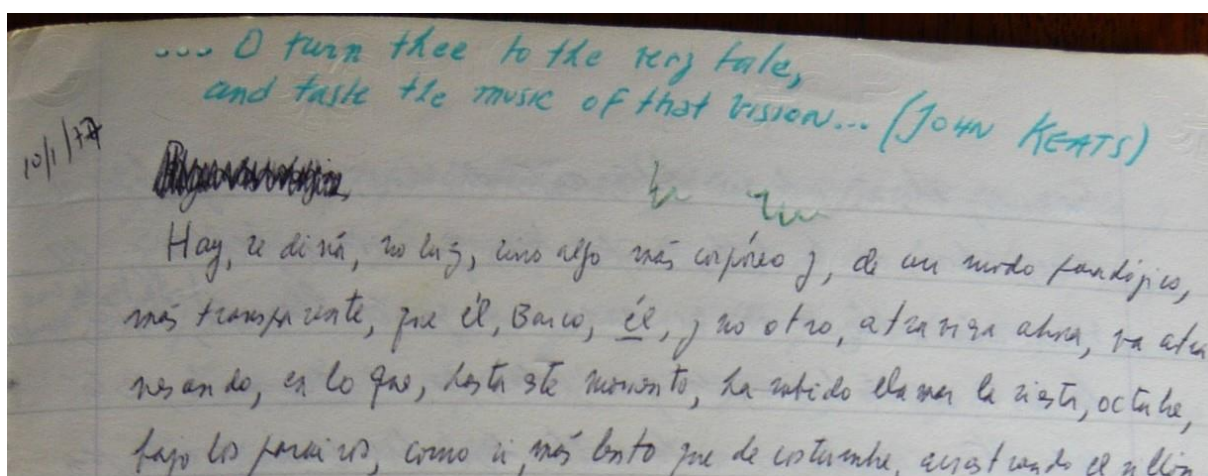 ... O turn thee to the very tale,
and taste the music of that vision... (JOHN KEATS)
10/1/77
Hay, se dirá, no luz, sino algo más corpóreo y, de un modo paradójico,
más transparente, que él, Barco, él, y no otro, atraviesa ahora, va atra
vesando, en lo que, hasta este momento, ha sabido llamar la siesta, octubre,
bajo los paraísos, como si, más lento que de costumbre, arrastrando el sillón